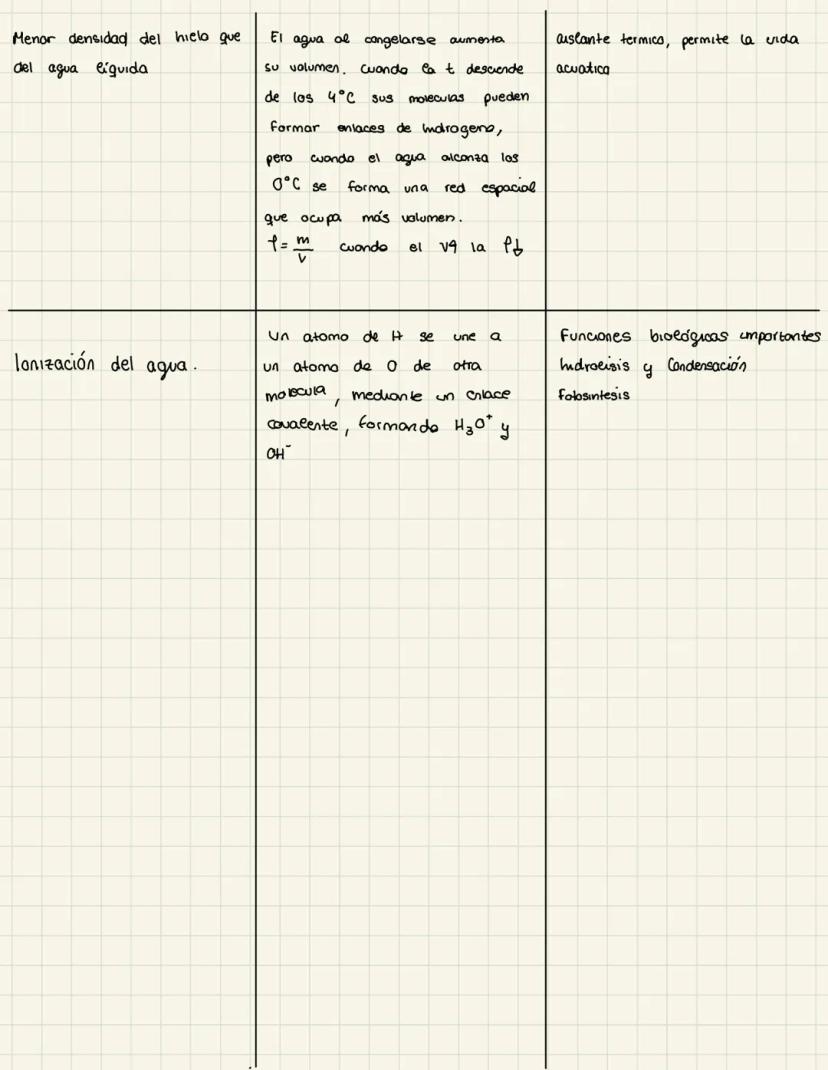 Menor densidad del hielo que
del agua líquida
El agua al congelarse aumenta
su volumen. Cuando la t desciende
de los 4°C sus moleculas pueden
formar enlaces de hidrogeno,
pero cuando el agua alcanza los
0°C se forma una red espacial
que ocupa más volumen.
ρ = m/v cuando el V↑ la ρ↓
aislante termico, permite la vida
acuatica
Ionización del agua.
Un atomo de H se une a
un atomo de O de otra
molecula, mediante un enlace
covalente, formando H₃O⁺ y
OH⁻
Funciones biológicas importantes
hidrolisis y Condensación
Fotosintesis